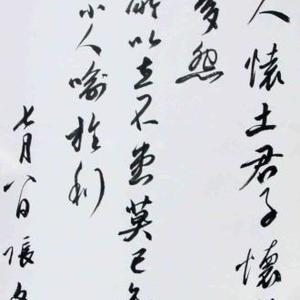 人懷土君子懷
多怨
所以立不患莫己知
小人喻於利
七月八日張